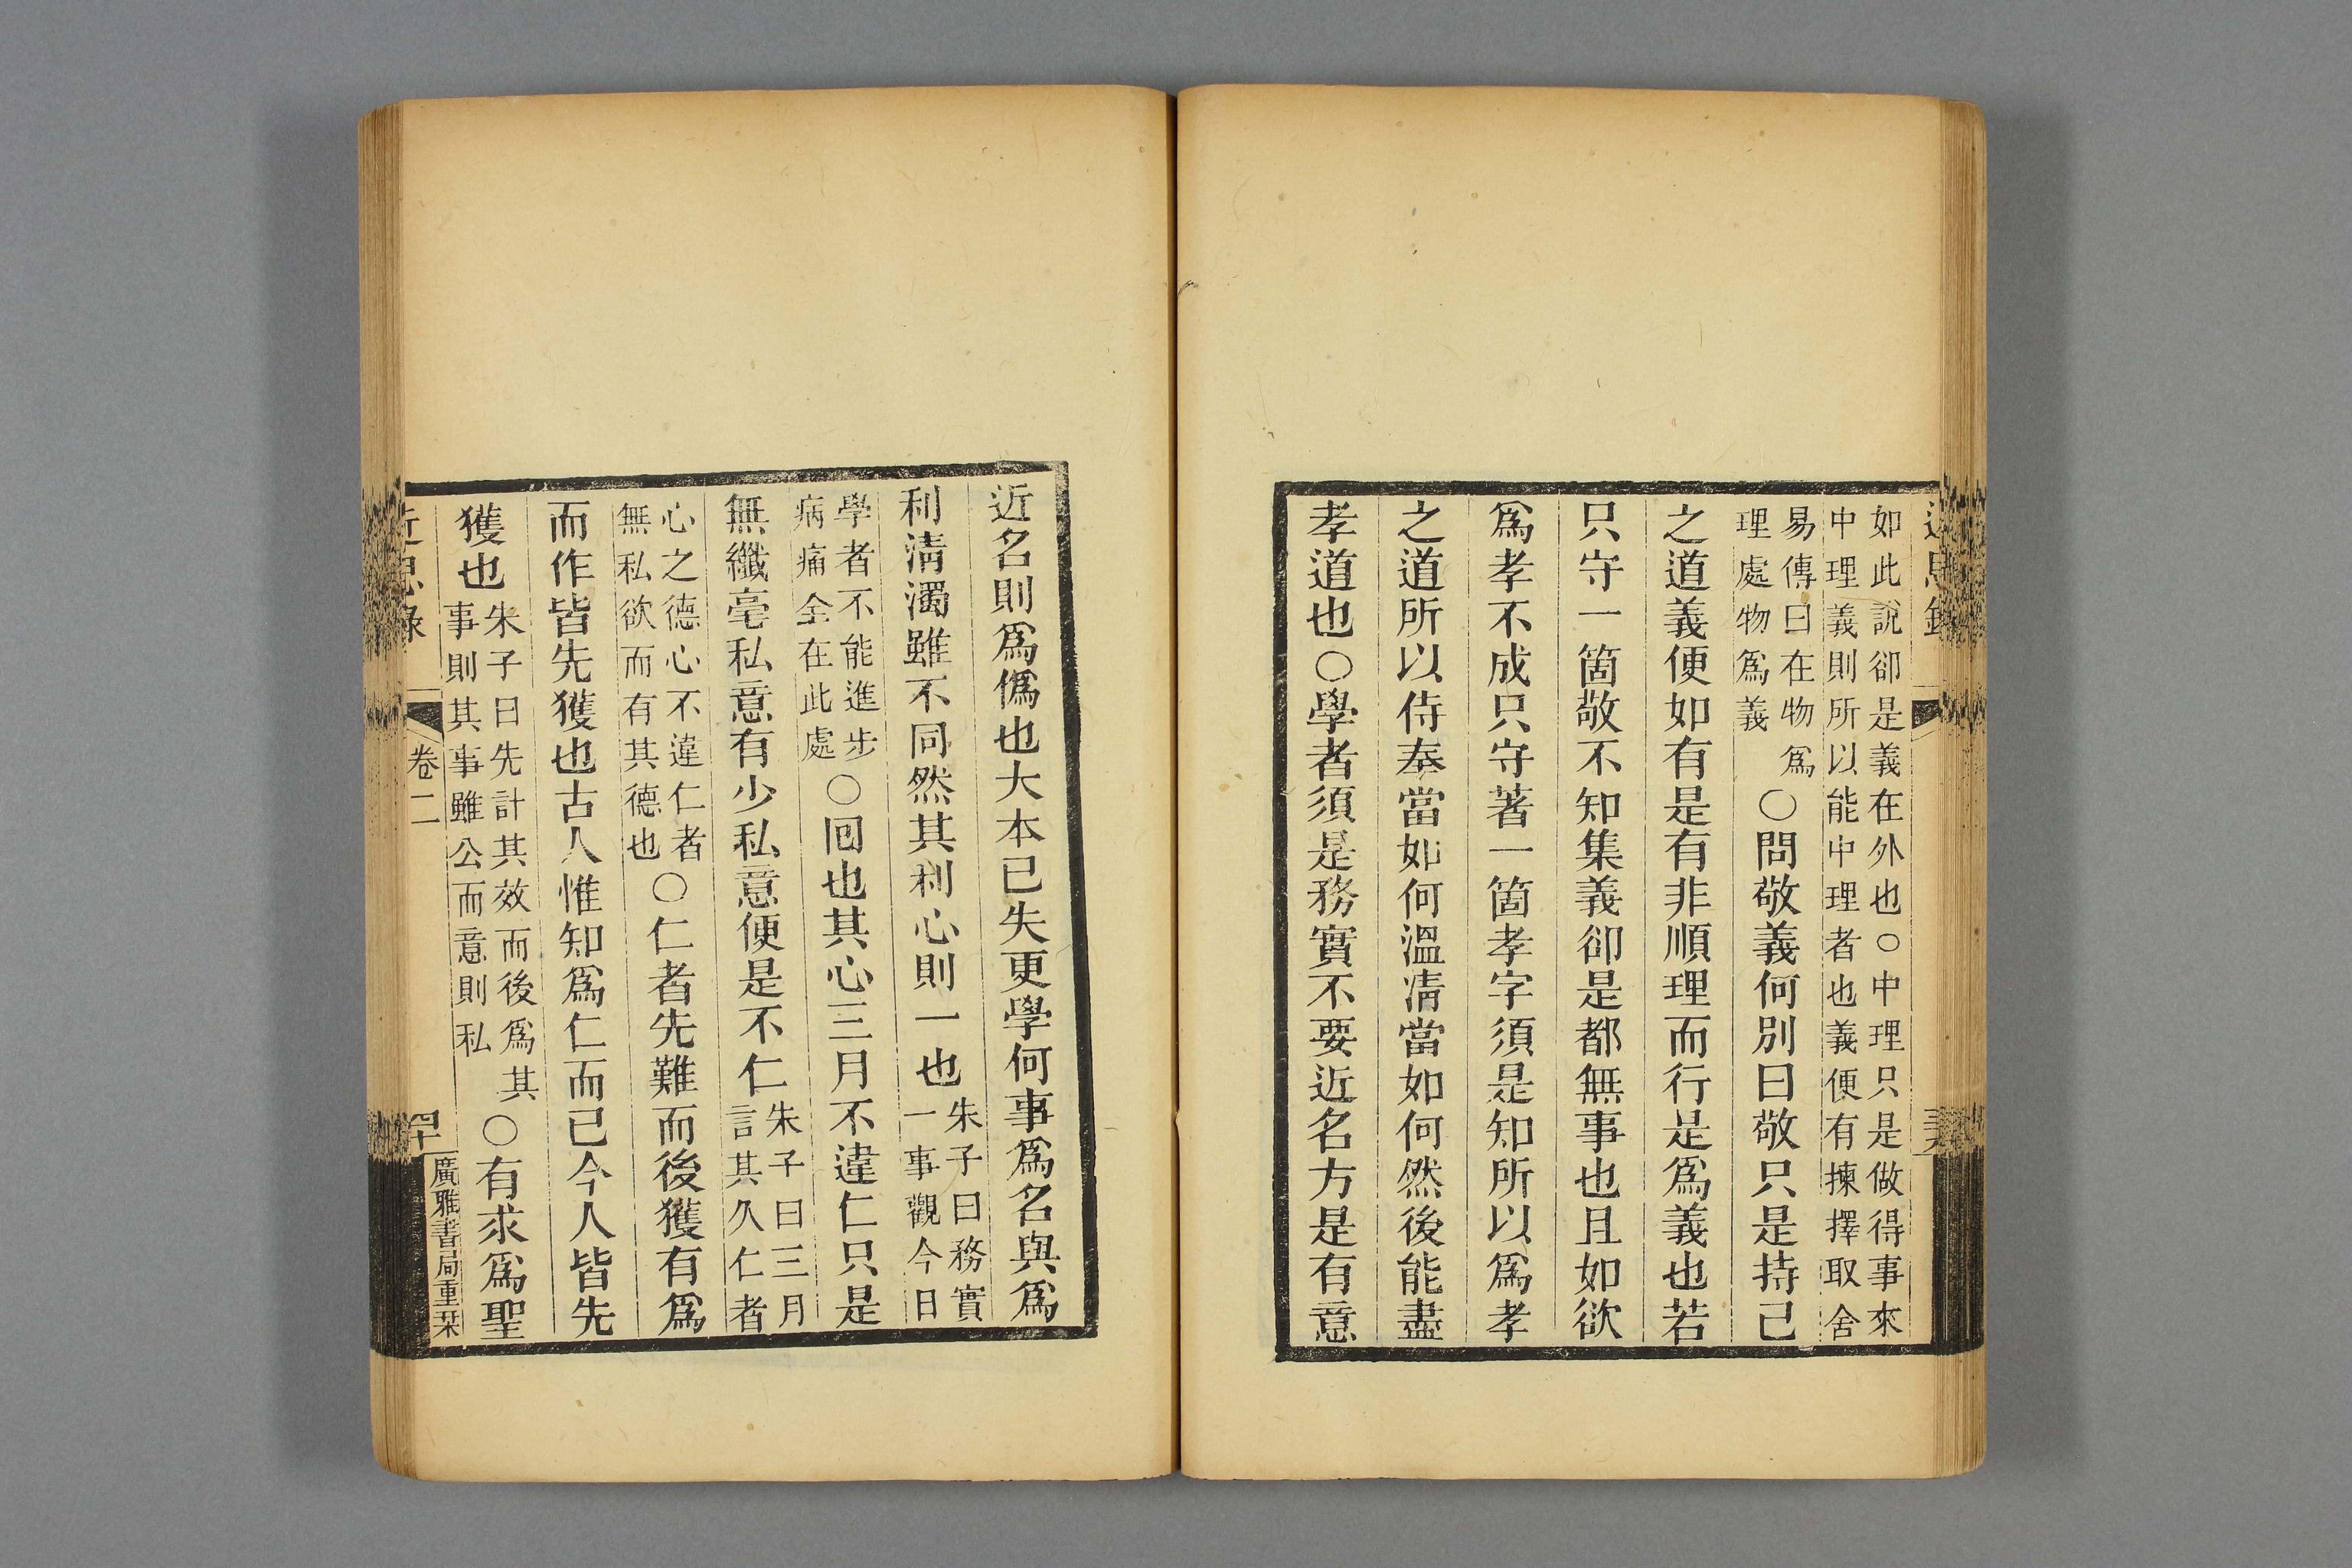 如此說卻是義在外也○中理只是做得事來
中理義則所以能中理者也義便有揀擇取舍
易傳曰在物爲
理處物爲義
○問敬義何別曰敬只是持己
之道義便如有是有非順理而行是爲義也若
只守一箇敬不知集義卻是都無事也且如欲
爲孝不成只守著一箇孝字須是知所以爲孝
之道所以侍奉當如何溫凊當如何然後能盡
孝道也○學者須是務實不要近名方是有意
近名則爲僞也大本已失更學何事爲名與爲
利淸濁雖不同然其利心則一也
朱子曰務實
一事觀今日
學者不能進步
病痛全在此處
○囘也其心三月不違仁只是
無纖毫私意有少私意便是不仁
朱子曰三月
言其久仁者
心之德心不違仁者
無私欲而有其德也
○仁者先難而後獲有爲
而作皆先獲也古人惟知爲仁而已今人皆先
獲也
朱子曰先計其效而後爲其
事則其事雖公而意則私
○有求爲聖
近思錄
卷二
四十
廣雅書局重栞